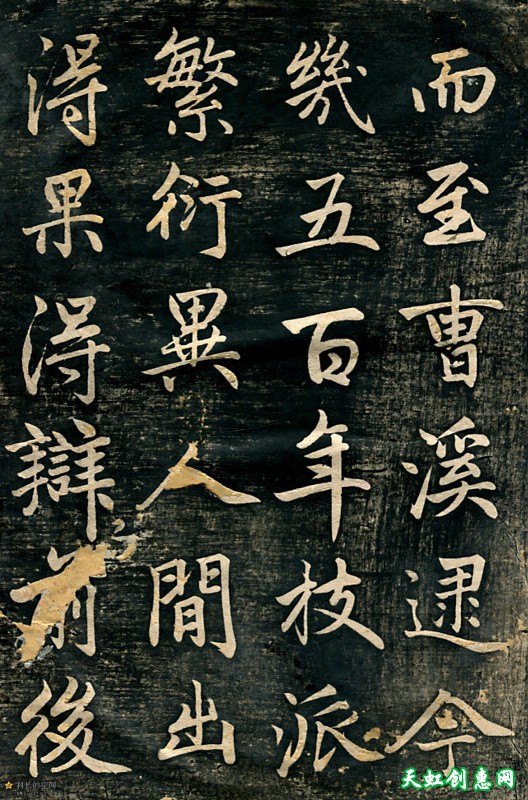 而至曹溪逮今
幾五百年枝派
繁衍異人間出
得果得辯前後
天虹创意网